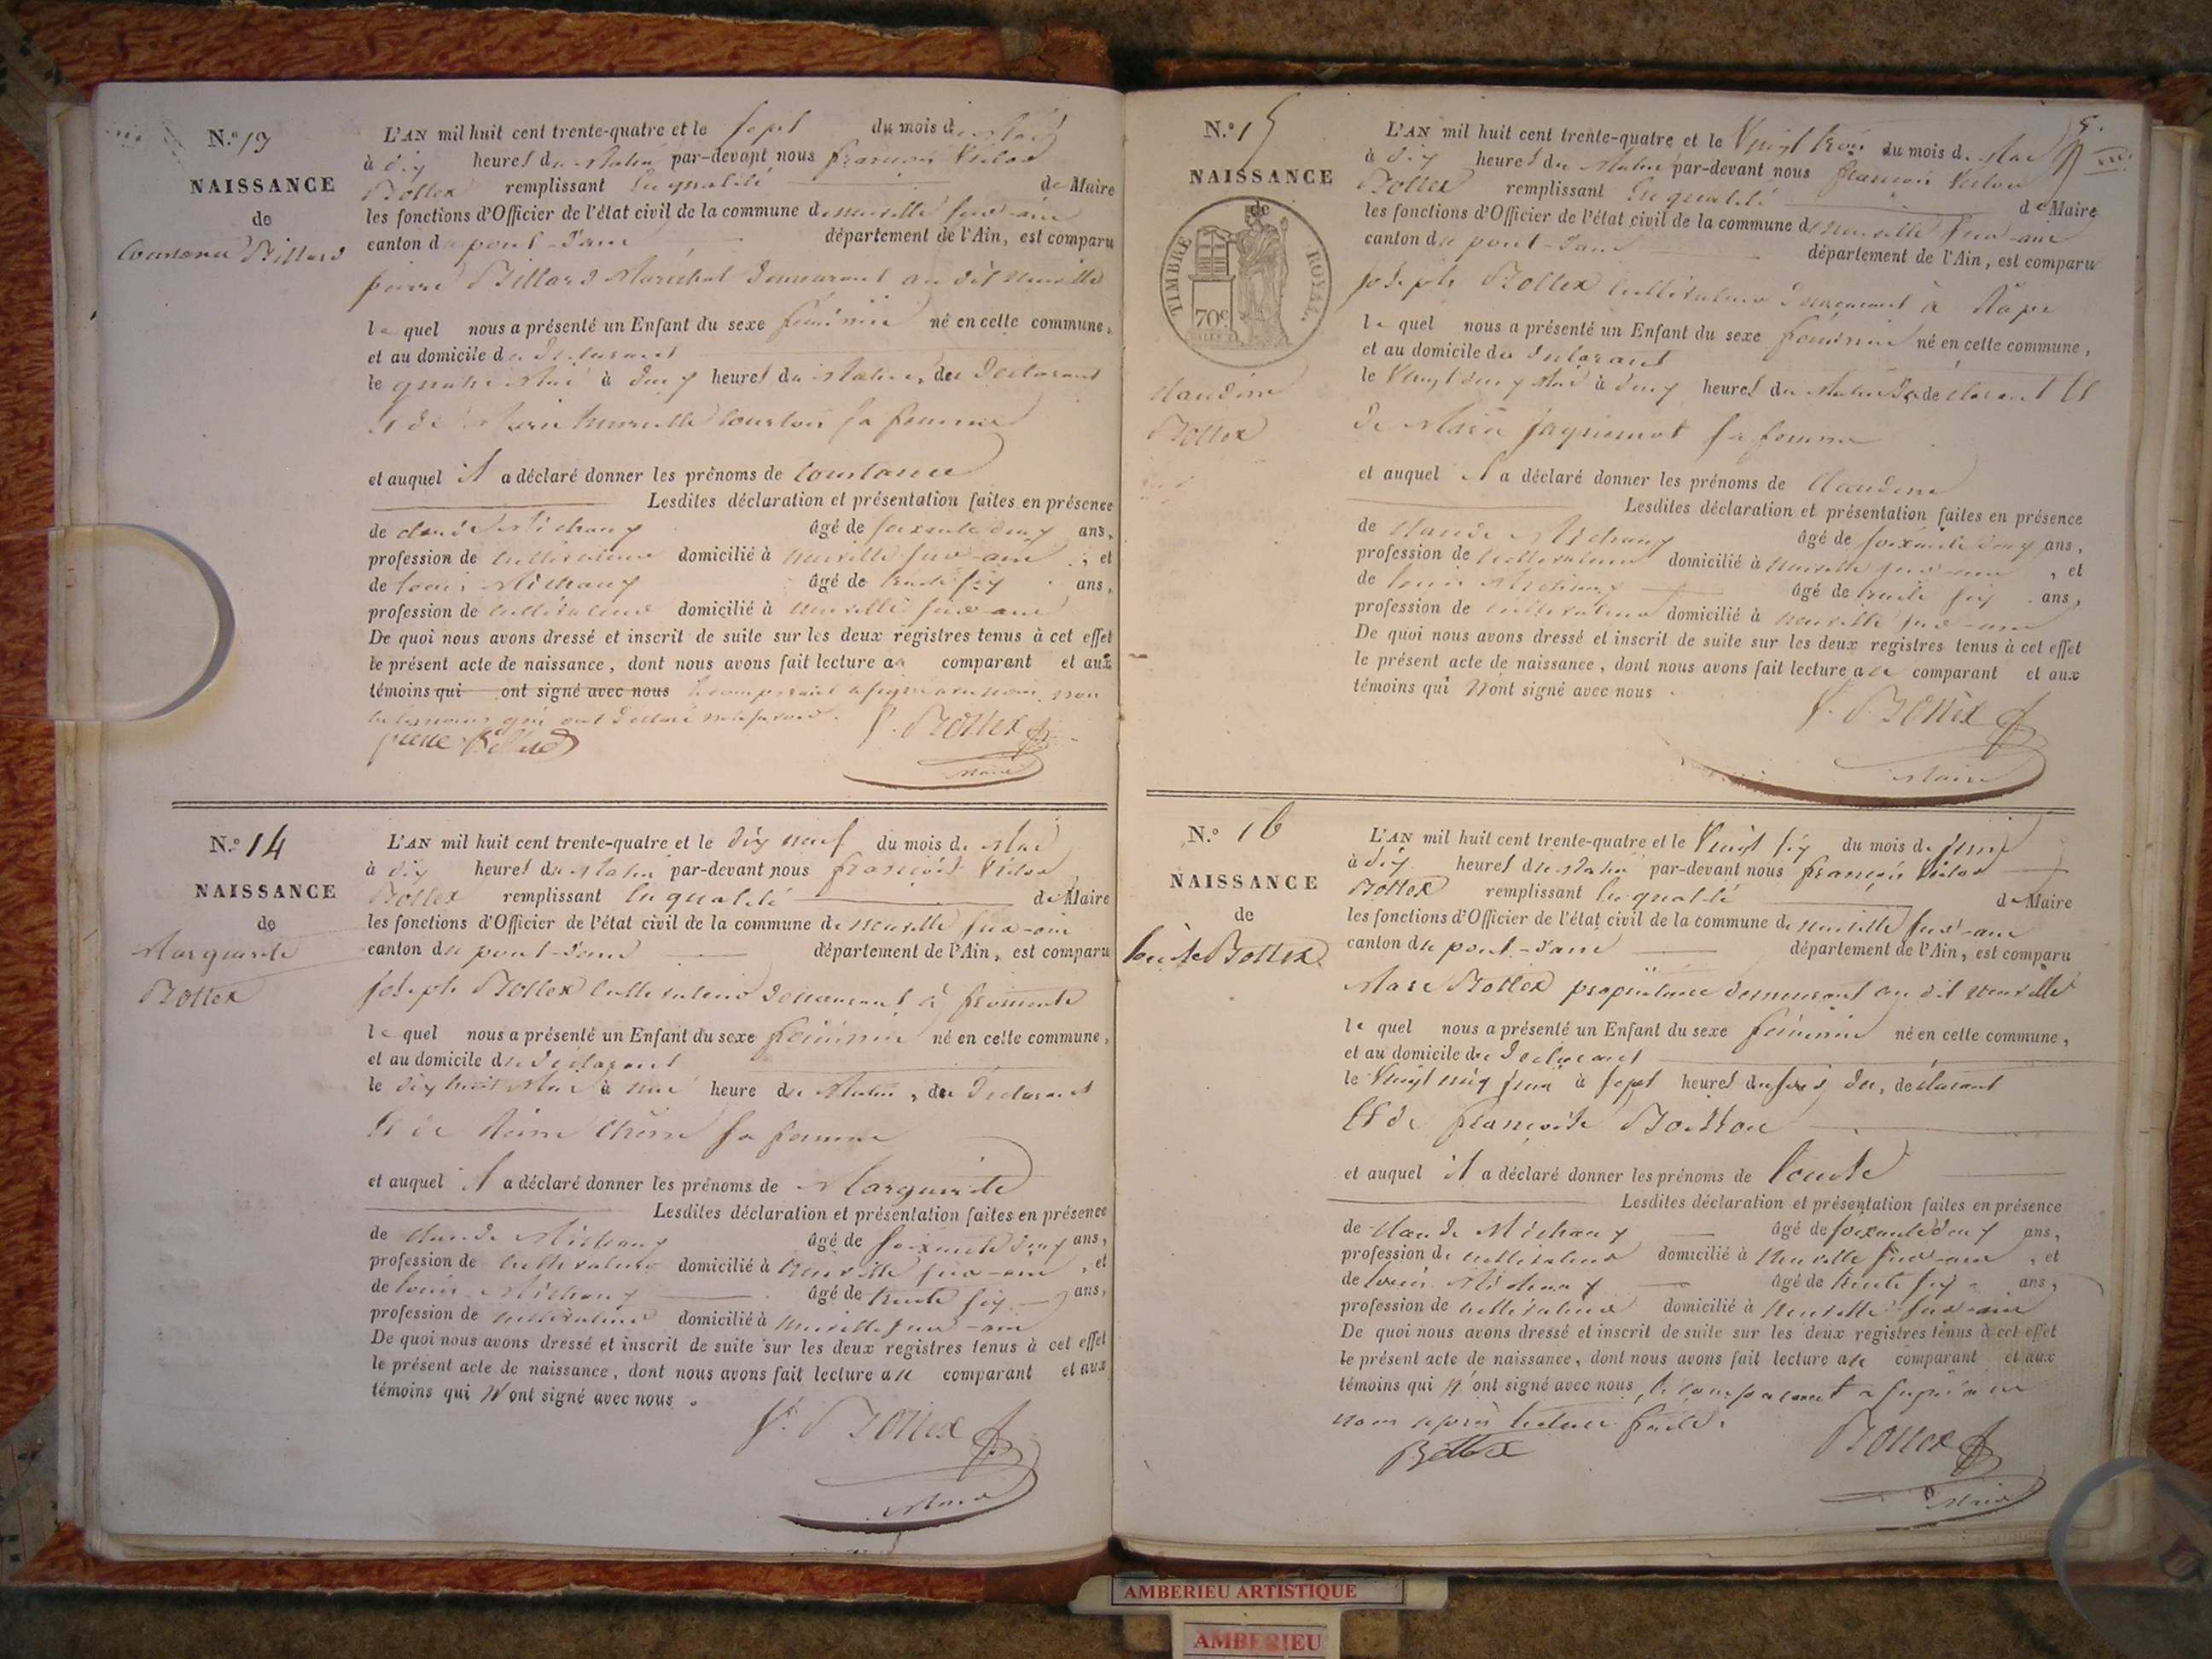 N.º 13
NAISSANCE
de
Constance Billard
L'AN mil huit cent trente-quatre et le sept du mois de Mai
à dix heures du Matin par-devant nous françois Victor
Bottex remplissant en qualité de Maire
les fonctions d'Officier de l'état civil de la commune de neuville sur-ain
canton de pont-d'ain département de l'Ain, est comparu
pierre Billard Maréchal demeurant au dit neuville
le quel nous a présenté un Enfant du sexe féminin né en cette commune,
et au domicile du déclarant
le quatre Mai à deux heures du Matin, du déclarant
et de Marie courtois sa femme
et auquel il a déclaré donner les prénoms de Constance
Lesdites déclaration et présentation faites en présence
de claude Michaux âgé de soixante deux ans,
profession de cultivateur domicilié à neuville sur-ain, et
de louis Michaux âgé de trente six ans,
profession de cultivateur domicilié à neuville sur-ain
De quoi nous avons dressé et inscrit de suite sur les deux registres tenus à cet effet
le présent acte de naissance, dont nous avons fait lecture au comparant et aux
témoins qui ont signé avec nous le comparant a signé avec nous non
les témoins qui ont déclaré ne le savoir.
pierre Billard V. Bottex
Maire
N.º 14
NAISSANCE
de
Marguerite
Bottex
L'AN mil huit cent trente-quatre et le dix neuf du mois de Mai
à dix heures du Matin par-devant nous françois Victor
Bottex remplissant en qualité de Maire
les fonctions d'Officier de l'état civil de la commune de neuville sur-ain
canton de pont-d'ain département de l'Ain, est comparu
joseph Bottex cultivateur demeurant à fromente
le quel nous a présenté un Enfant du sexe féminin né en cette commune,
et au domicile du déclarant
le dix huit Mai à une heure du Matin, du déclarant
et de sa femme
et auquel il a déclaré donner les prénoms de Marguerite
Lesdites déclaration et présentation faites en présence
de claude Michaux âgé de soixante deux ans,
profession de cultivateur domicilié à neuville sur-ain, et
de louis Michaux âgé de trente six ans,
profession de cultivateur domicilié à neuville sur-ain
De quoi nous avons dressé et inscrit de suite sur les deux registres tenus à cet effet
le présent acte de naissance, dont nous avons fait lecture au comparant et aux
témoins qui n'ont signé avec nous.
V. Bottex
Maire
5.
N.º 15
NAISSANCE
de
TIMBRE ROYAL
70c
claudine
Bottex
L'AN mil huit cent trente-quatre et le Vingt trois du mois de Mai
à dix heures du Matin par-devant nous françois Victor
Bottex remplissant en qualité de Maire
les fonctions d'Officier de l'état civil de la commune de neuville sur-ain
canton de pont-d'ain département de l'Ain, est comparu
joseph Bottex cultivateur demeurant à
le quel nous a présenté un Enfant du sexe féminin né en cette commune,
et au domicile du déclarant
le Vingt deux Mai à deux heures du Matin du déclarant et
de Marie jaquemot sa femme
et auquel il a déclaré donner les prénoms de Claudine
Lesdites déclaration et présentation faites en présence
de claude Michaux âgé de soixante deux ans,
profession de cultivateur domicilié à neuville sur-ain, et
de louis Michaux âgé de trente six ans,
profession de cultivateur domicilié à neuville sur-ain
De quoi nous avons dressé et inscrit de suite sur les deux registres tenus à cet effet
le présent acte de naissance, dont nous avons fait lecture au comparant et aux
témoins qui n'ont signé avec nous.
V. Bottex
Maire
N.º 16
NAISSANCE
de
Louise Bottex
L'AN mil huit cent trente-quatre et le Vingt six du mois de juin
à dix heures du Matin par-devant nous françois Victor
Bottex remplissant en qualité de Maire
les fonctions d'Officier de l'état civil de la commune de neuville sur-ain
canton de pont-d'ain département de l'Ain, est comparu
Marc Bottex propriétaire demeurant au dit neuville
le quel nous a présenté un Enfant du sexe féminin né en cette commune,
et au domicile du déclarant
le Vingt cinq juin à sept heures du soir, du déclarant
et de françoise
et auquel il a déclaré donner les prénoms de Louise
Lesdites déclaration et présentation faites en présence
de claude Michaux âgé de soixante deux ans,
profession de cultivateur domicilié à neuville sur-ain, et
de louis Michaux âgé de trente six ans,
profession de cultivateur domicilié à neuville sur-ain
De quoi nous avons dressé et inscrit de suite sur les deux registres tenus à cet effet
le présent acte de naissance, dont nous avons fait lecture au comparant et aux
témoins qui n'ont signé avec nous, le comparant a signé avec
nous après lecture faite.
Bottex Bottex
Maire
AMBERIEU ARTISTIQUE
AMBERIEU